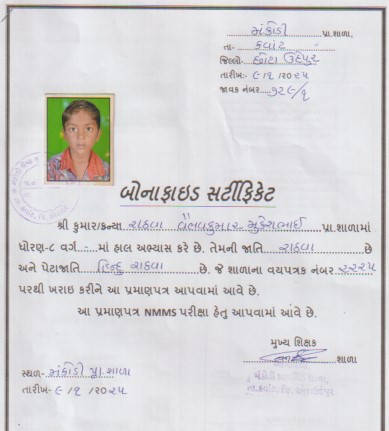 મંકોડી પ્રા.શાળા,
તા- કવાંટ
જિલ્લો- છોટા ઉદેપુર
તારીખ- ૯/૧/૨૦૨૫
જાવક નંબર ૧૨૯/૧
બોનાફાઇડ સર્ટીફિકેટ
શ્રી કુમાર/કન્યા રાઠવા મુકેશભાઈ પ્રા.શાળામાં
ધોરણ-૮ વર્ગ - માં હાલ અભ્યાસ કરે છે. તેમની જાતિ રાઠવા છે
અને પેટાજાતિ હિન્દુ રાઠવા છે. જે શાળાના વયપત્રક નંબર ૨૨૨૫
પરથી ખરાઇ કરીને આ પ્રમાણપત્ર આપવામાં આવે છે.
આ પ્રમાણપત્ર NMMS પરીક્ષા હેતુ આપવામાં આંવે છે.
મુખ્ય શિક્ષક
શાળા
સ્થળ- મંકોડી પ્રા.શાળા
તારીખ- ૯/૧/૨૦૨૫